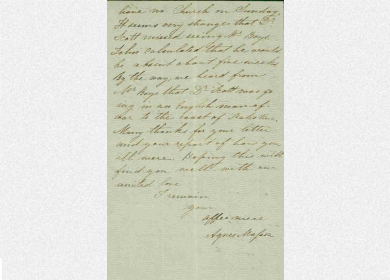 have no Church on Sunday
It seems very strange that Dr
Scott missed seeing Mr Hays
calculated that he would
be absent about five weeks
By the way we heard from
Mr Hays that Dr Scott was go
ing in an English man of
war to the coast of Palestine
Many thanks for your letter
and your report of how you
all were. Hoping this will
find you well with our
united love
I remain
your
affec niece
Agnes